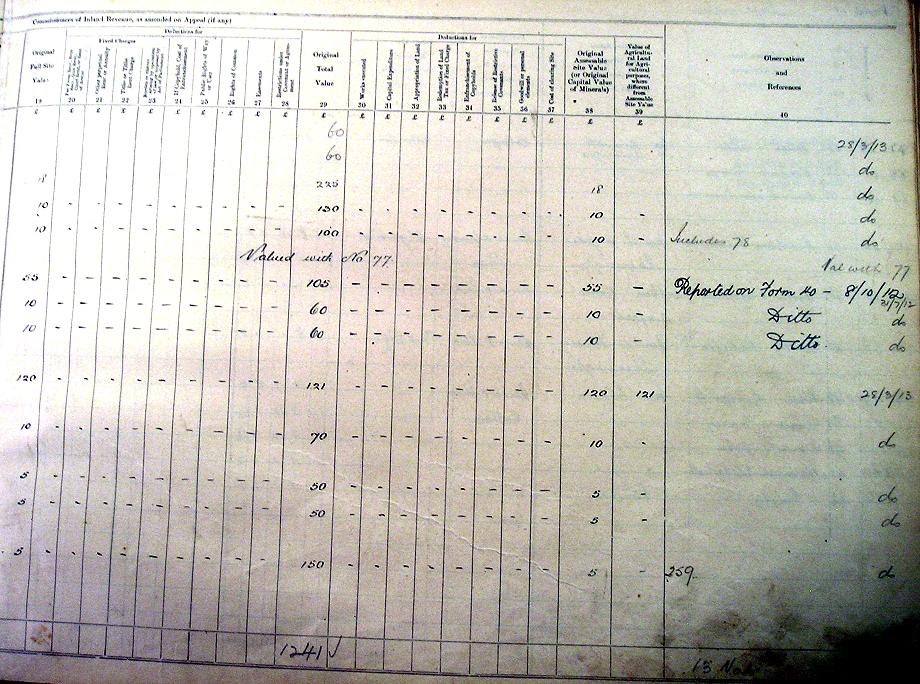 Commissioners of Inland Revenue, as amended on Appeal (if any)
Deductions for
Deductions for
Fixed Charges
Original Full Site Value
Public Rights of Way or User
Rights of Common
Easements
Original Total Value
Works executed
Capital Expenditure
Appropriation of Land
Redemption of Land Tax or Fixed Charge
Enfranchisement of Copyholds
Release of Restrictive Covenants
Goodwill or personal elements
Cost of clearing Site
Original Assessable Site Value (or Original Capital Value of Minerals)
Value of Agricultural Land for Agricultural purposes, where different from Assessable Site Value
Observations and References
19 20 21 22 23 24 25 26 27 28 29 30 31 32 33 34 35 36 37 38 39 40
£ £ £ £ £ £ £ £ £ £ £ £ £ £ £ £ £ £ £ £ £
60 28/3/13
60 do
18 225 18 do
10 - - - - - - - - - 130 - - - - - - - - 10 - do
10 - - - - - - - - - 100 - - - - - - - - 10 - Includes 78 do
Valued with No 77 Val with 77
55 - - - - - - - - - 105 - - - - - - - - 55 - Reported on Form 40 - 8/10/12
31/7/12
10 - - - - - - - - - 60 - - - - - - - - 10 - Ditto do
10 - - - - - - - - - 60 - - - - - - - - 10 - Ditto do
120 - - - - - - - - - 121 - - - - - - - - 120 121 28/3/13
10 - - - - - - - - - 70 - - - - - - - - 10 - do
5 - - - - - - - - - 50 - - - - - - - - 5 - do
5 - - - - - - - - - 50 - - - - - - - - 5 - do
5 - - - - - - - - - 150 - - - - - - - - 5 - 259 do
1241 ✓ 13 Nos